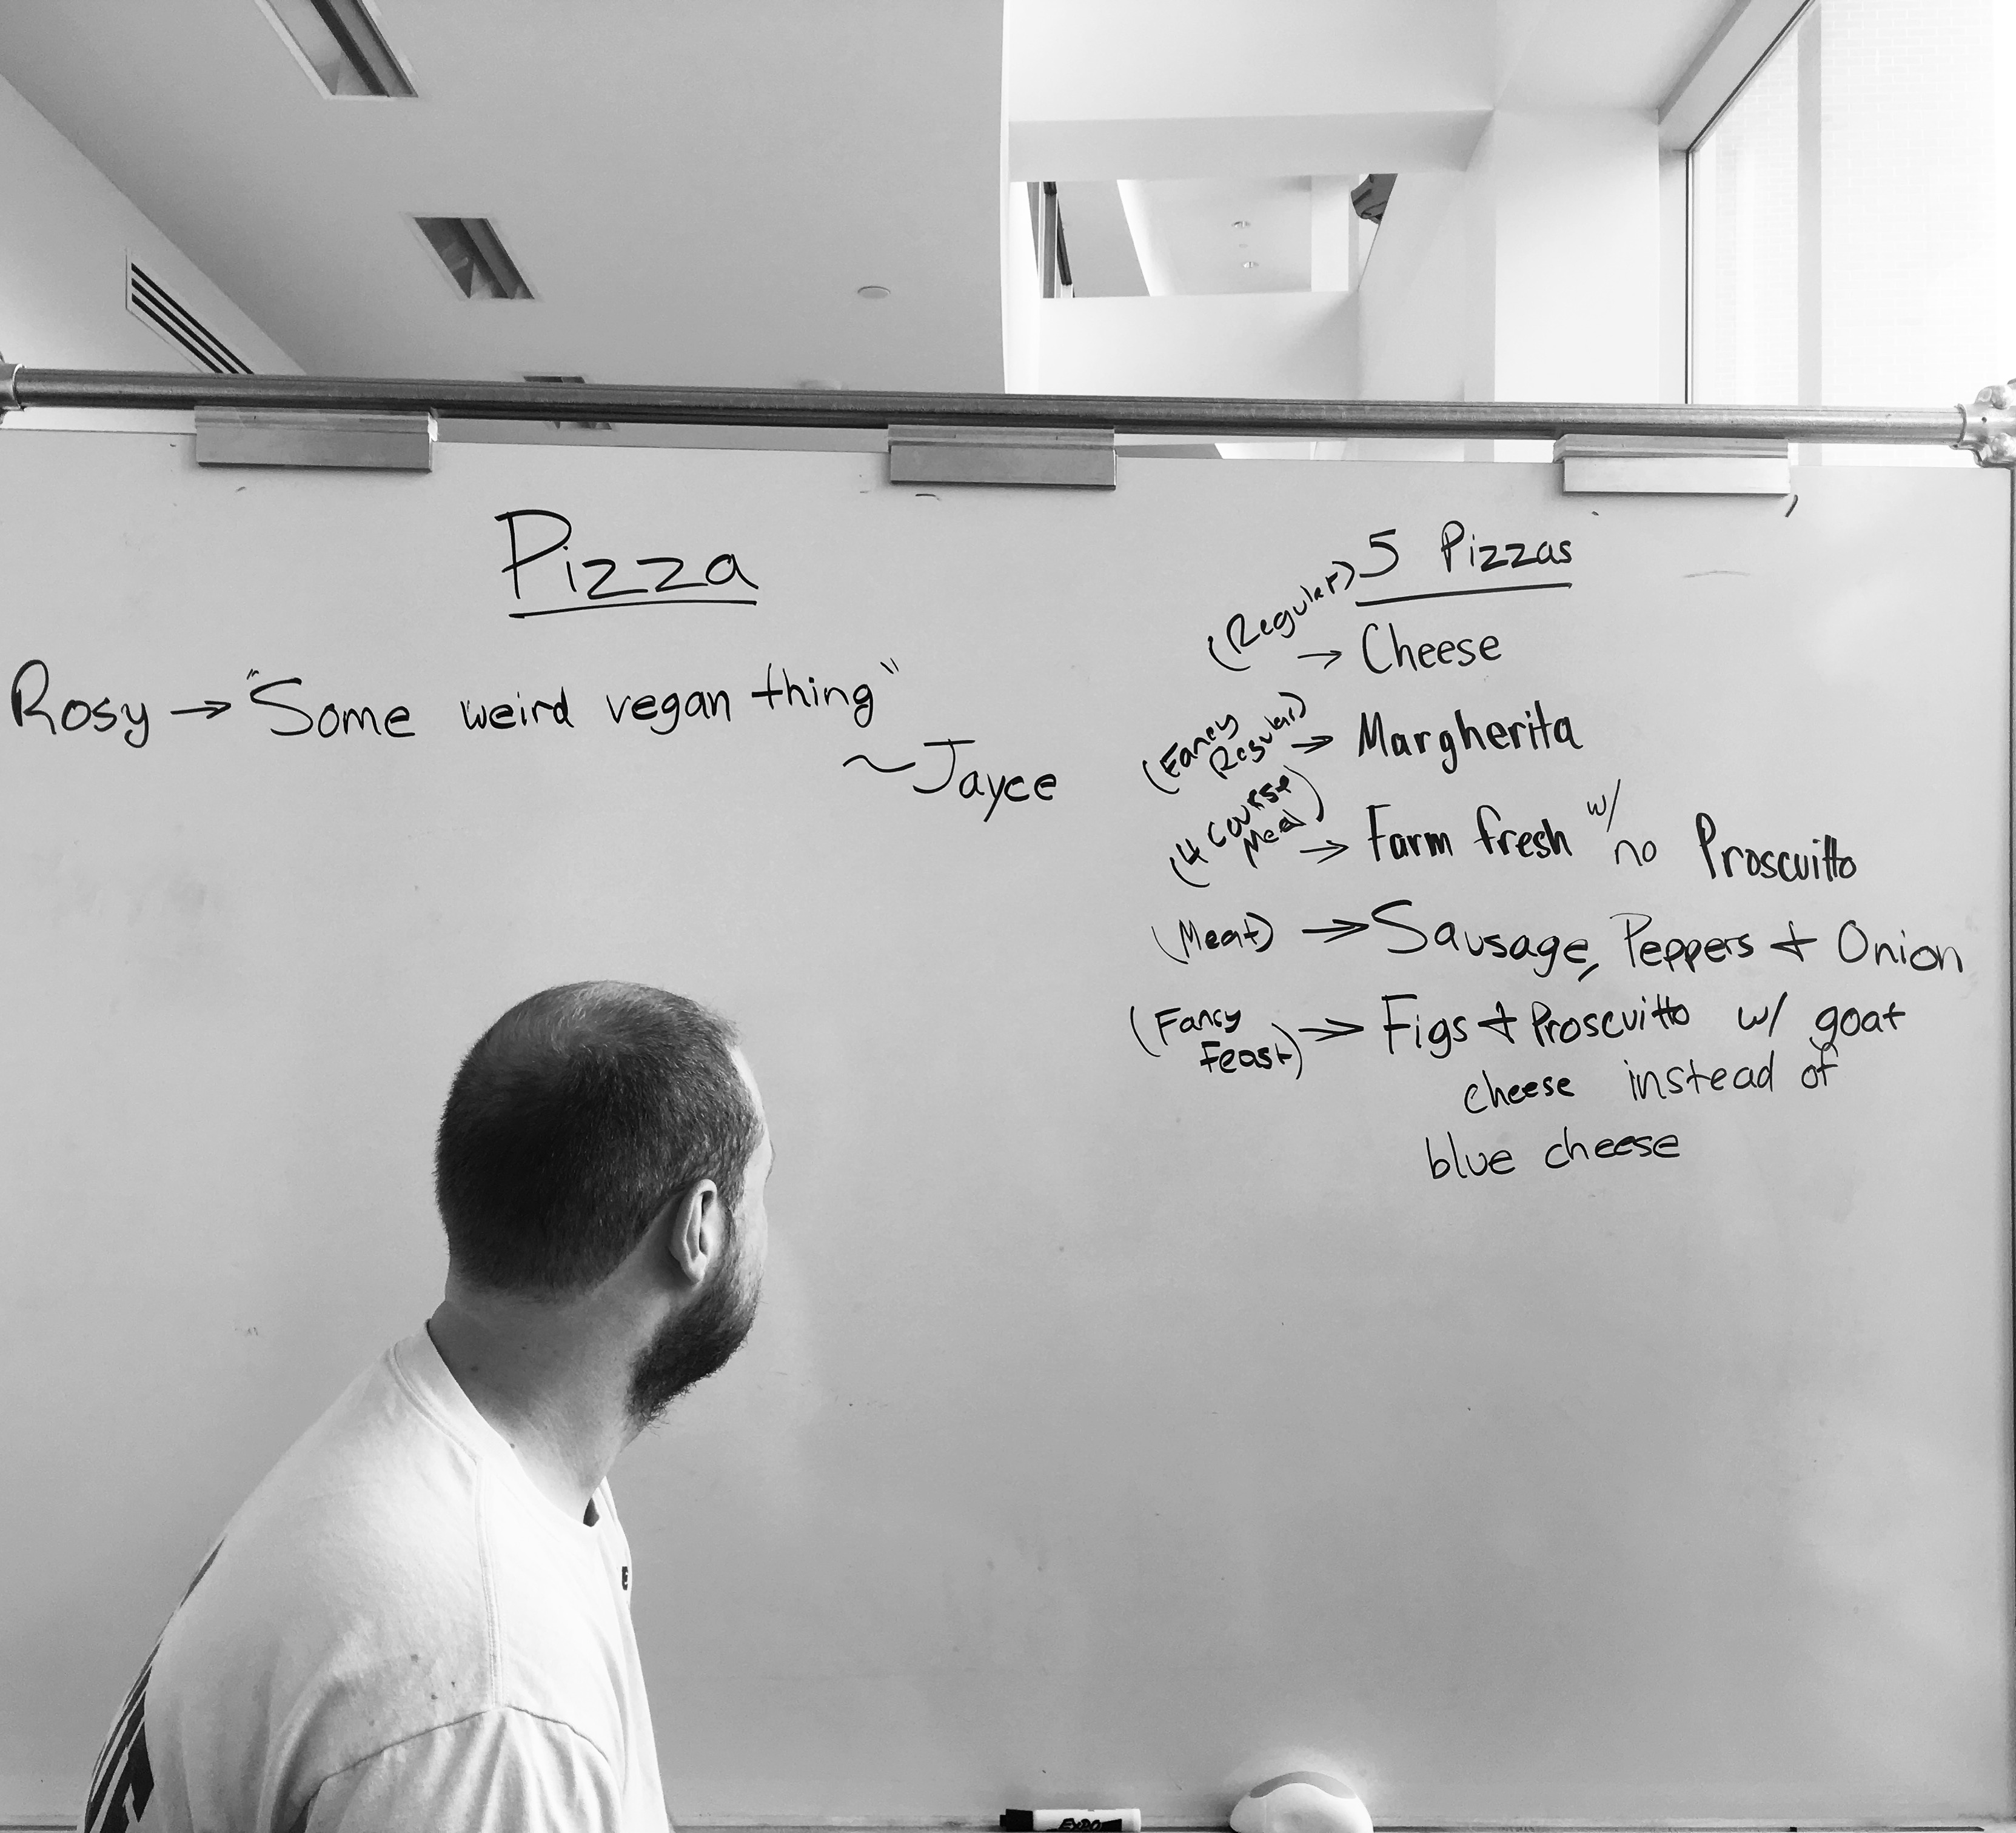 Pizza
Rosy → "Some weird vegan thing"
~Jayce
5 Pizzas
(Regular) → Cheese
(Fancy Regular) → Margherita
(4 Course Meal) → Farm fresh w/ no Proscuitto
(Meat) → Sausage, Peppers + Onion
(Fancy Feast) → Figs + Proscuitto w/ goat
cheese instead of
blue cheese
EXPO